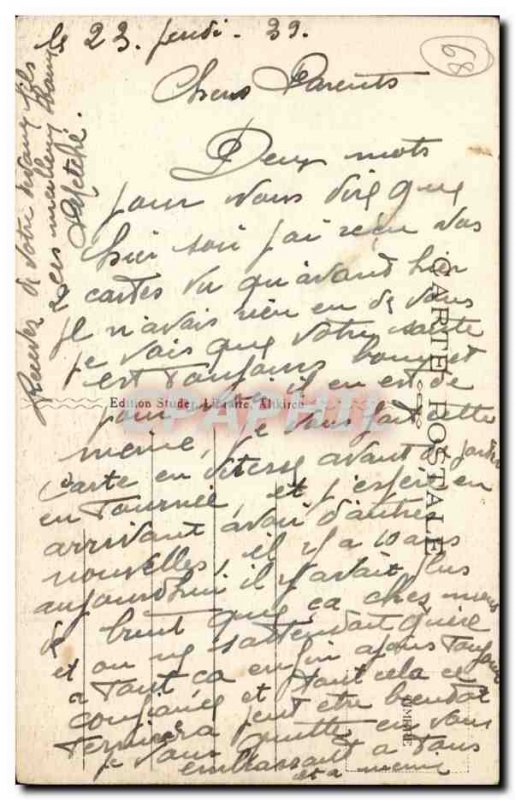 le 23. jeudi - 39.
68
Chers Parents
Deux mots
pour vous dire que
hier soir j'ai recu vos
cartes vu qu'avant hier
je n'avais rien eu de vous
je vois que votre sante
est toujours bonne et
pour moi il en est de
même, je vous fait cette
carte en vitesse avant de partir
en tournée, et j'espère en
arrivant avoir d'autres
nouvelles, il y a 10 ans
aujourdhui il y avait plus
de bruit que ça chez nous
et on ne s'attendait guère
a tout ça enfin ayons toujours
confiance et tout cela ce
terminera peut être bientôt
je vous quitte en vous
embrassant a tous
et a memé
Recevez de votre fils
ses meilleurs
CARTE POSTALE
Edition Studer, Libraire, Altkirch
CPAPHIL